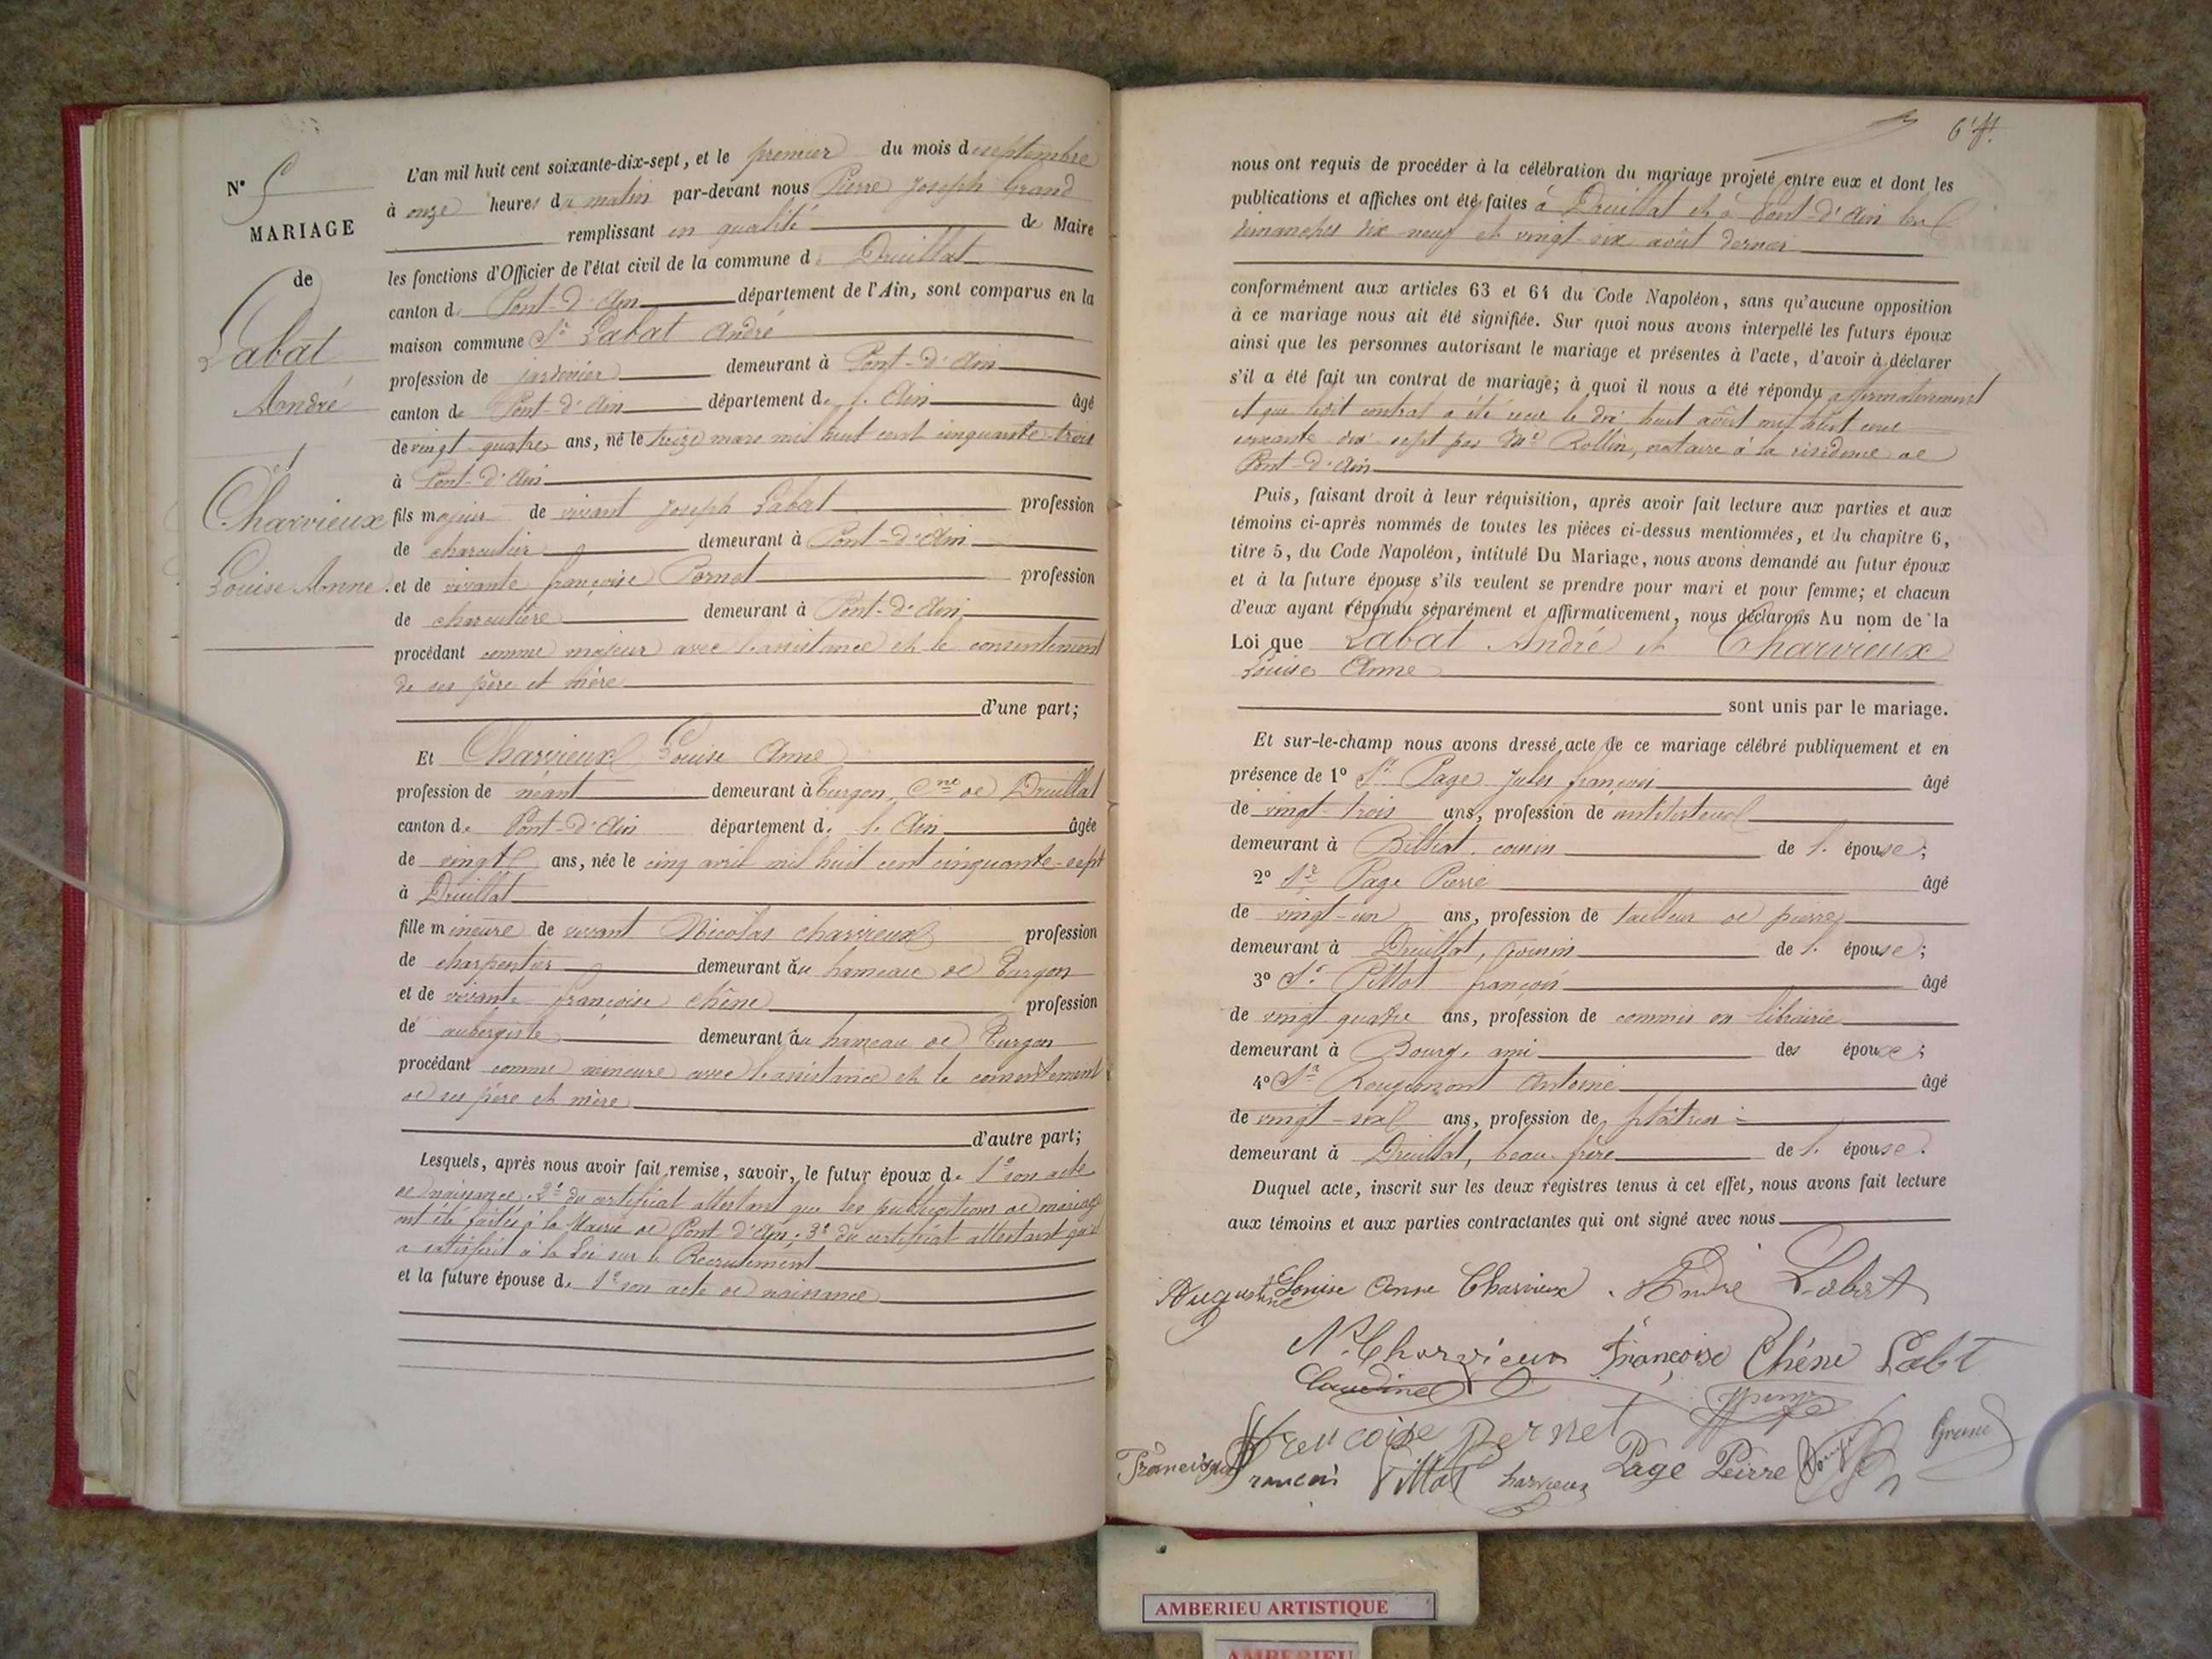 N° 5
MARIAGE
de
Labat
André
Charvieux
Louise Anne
L'an mil huit cent soixante-dix-sept, et le premier du mois de septembre
à onze heures du matin par-devant nous Pierre Joseph Grand
remplissant en qualité de Maire
les fonctions d'Officier de l'état civil de la commune de Druillat
canton de Pont-d'Ain département de l'Ain, sont comparus en la
maison commune Sr Labat André
profession de jardinier demeurant à Pont-d'Ain
canton de Pont-d'Ain département de l'Ain âgé
de vingt-quatre ans, né le treize mars mil huit cent cinquante-trois
à Pont-d'Ain
fils majeur de vivant Joseph Labat profession
de charcutier demeurant à Pont-d'Ain
et de vivante françoise Pernet profession
de charcutière demeurant à Pont-d'Ain
procédant comme majeur avec l'assistance et le consentement
de ses père et mère
d'une part;
Et Charvieux Louise Anne
profession de néant demeurant à Turgon, Cne de Druillat
canton de Pont-d'Ain département de l'Ain âgée
de vingt ans, née le cinq avril mil huit cent cinquante-sept
à Druillat
fille mineure de vivant Nicolas charvieux profession
de charpentier demeurant au hameau de Turgon
et de vivante françoise chêne profession
de aubergiste demeurant au hameau de Turgon
procédant comme mineure avec l'assistance et le consentement
de ses père et mère
d'autre part;
Lesquels, après nous avoir fait remise, savoir, le futur époux de 1° son acte
de naissance, 2° du certificat attestant que les publications de mariage
ont été faites à la Mairie de Pont d'Ain; 3° du certificat attestant qu'il
a satisfait à la Loi sur le Recrutement
et la future épouse de 1° son acte de naissance
nous ont requis de procéder à la célébration du mariage projeté entre eux et dont les
publications et affiches ont été faites à Druillat et à Pont-d'Ain les
dimanches dix-neuf et vingt-six août dernier
conformément aux articles 63 et 64 du Code Napoléon, sans qu'aucune opposition
à ce mariage nous ait été signifiée. Sur quoi nous avons interpellé les futurs époux
ainsi que les personnes autorisant le mariage et présentes à l'acte, d'avoir à déclarer
s'il a été fait un contrat de mariage; à quoi il nous a été répondu affirmativement
et que ledit contrat a été reçu le dix huit août mil huit cent
soixante-dix-sept par Me Rollin, notaire à la résidence de
Pont-d'Ain
Puis, faisant droit à leur réquisition, après avoir fait lecture aux parties et aux
témoins ci-après nommés de toutes les pièces ci-dessus mentionnées, et du chapitre 6,
titre 5, du Code Napoléon, intitulé Du Mariage, nous avons demandé au futur époux
et à la future épouse s'ils veulent se prendre pour mari et pour femme; et chacun
d'eux ayant répondu séparément et affirmativement, nous déclarons Au nom de la
Loi que Labat André et Charvieux
Louise Anne
sont unis par le mariage.
Et sur-le-champ nous avons dressé acte de ce mariage célébré publiquement et en
présence de 1° Sr Page Jules françois âgé
de vingt-trois ans, profession de
demeurant à Billiat, cousin de l'épouse;
2° Sr Page Pierre âgé
de vingt-un ans, profession de tailleur de pierres
demeurant à Druillat, cousin de l'épouse;
3° Sr Pittot françois âgé
de vingt-quatre ans, profession de commis en librairie
demeurant à Bourg, ami des époux;
4° Sr Rougemont Antoine âgé
de vingt-six ans, profession de plâtrier
demeurant à Druillat, beau-frère de l'épouse.
Duquel acte, inscrit sur les deux registres tenus à cet effet, nous avons fait lecture
aux témoins et aux parties contractantes qui ont signé avec nous
Augustine Louise Anne Charvieux André Labat
N. Charvieux Françoise Chêne Labat
Claudine
Francoise Pernet
François Pittot charvieux Page Peirre Grand
AMBERIEU ARTISTIQUE
AMBERIEU